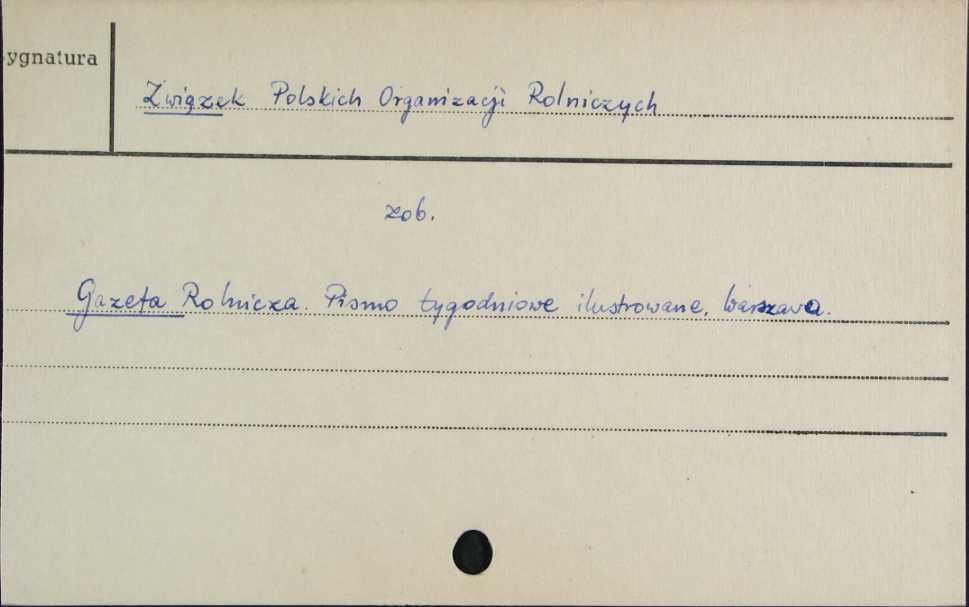 ygnatura
Związek Polskich Organizacji Rolniczych
zob.
Gazeta Rolnicza. Pismo tygodniowe ilustrowane. Warszawa.